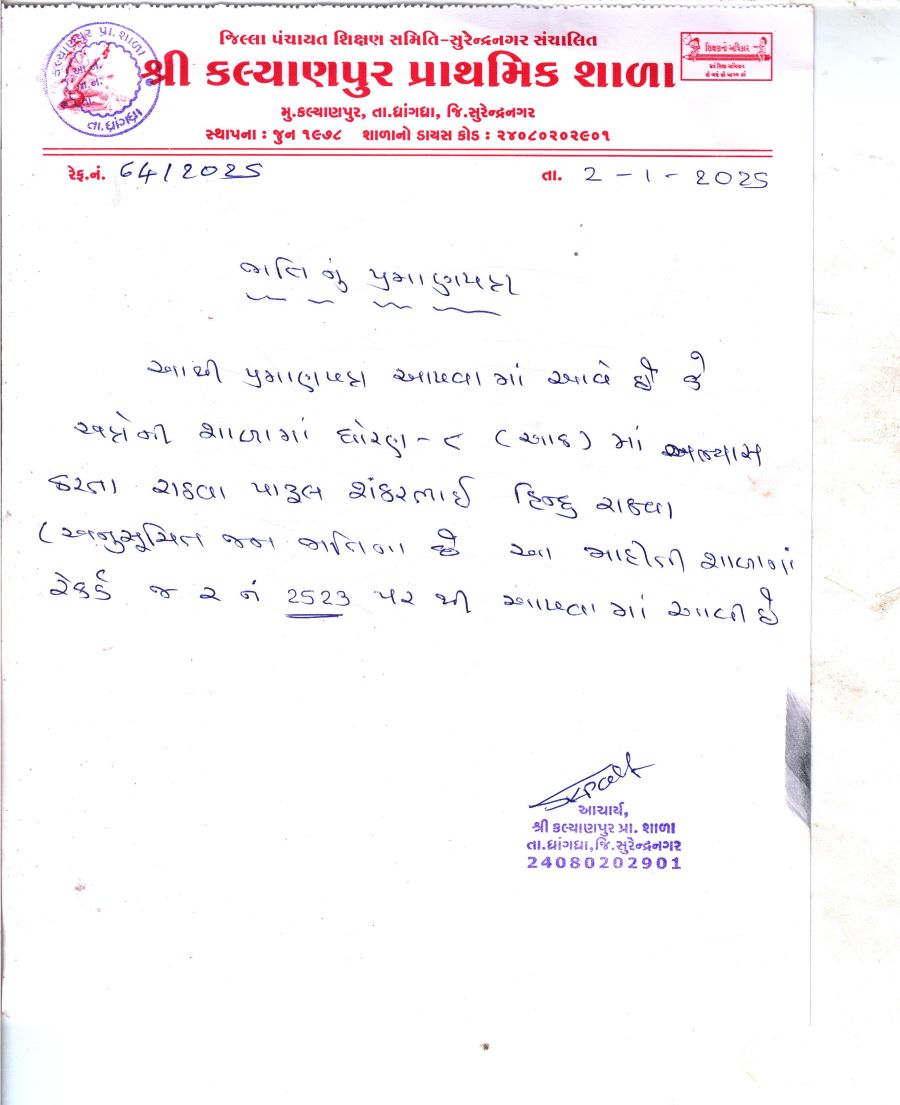 જિલ્લા પંચાયત શિક્ષણ સમિતિ-સુરેન્દ્રનગર સંચાલિત
શ્રી કલ્યાણપુર પ્રાથમિક શાળા
શિક્ષણનો અધિકાર
મુ.કલ્યાણપુર, તા.ધ્રાંગધ્રા, જિ.સુરેન્દ્રનગર
સ્થાપના : જુન ૧૯૭૮ શાળાનો ડાયસ કોડ : ૨૪૦૮૦૨૦૨૯૦૧
કલ્યાણપુર પ્રા. શાળા
તા.ધ્રાંગધ્રા
રેફ.નં. 64/2025
તા. 2-1-2025
જાતિ નું પ્રમાણપત્ર
આથી પ્રમાણપત્ર આપવામાં આવે છે કે
અત્રેની શાળામાં ધોરણ-૮ (આઠ) માં અભ્યાસ
કરતા રાઠવા પારૂલ શંકરભાઈ હિન્દુ રાઠવા
(અનુસૂચિત જન જાતિના છે આ માહીતી શાળાનાં
રેકર્ડ જ ૨ નં 2523 પર થી આપવામાં આવી છે
આચાર્ય,
શ્રી કલ્યાણપુર પ્રા. શાળા
તા.ધ્રાંગધ્રા,જિ.સુરેન્દ્રનગર
24080202901